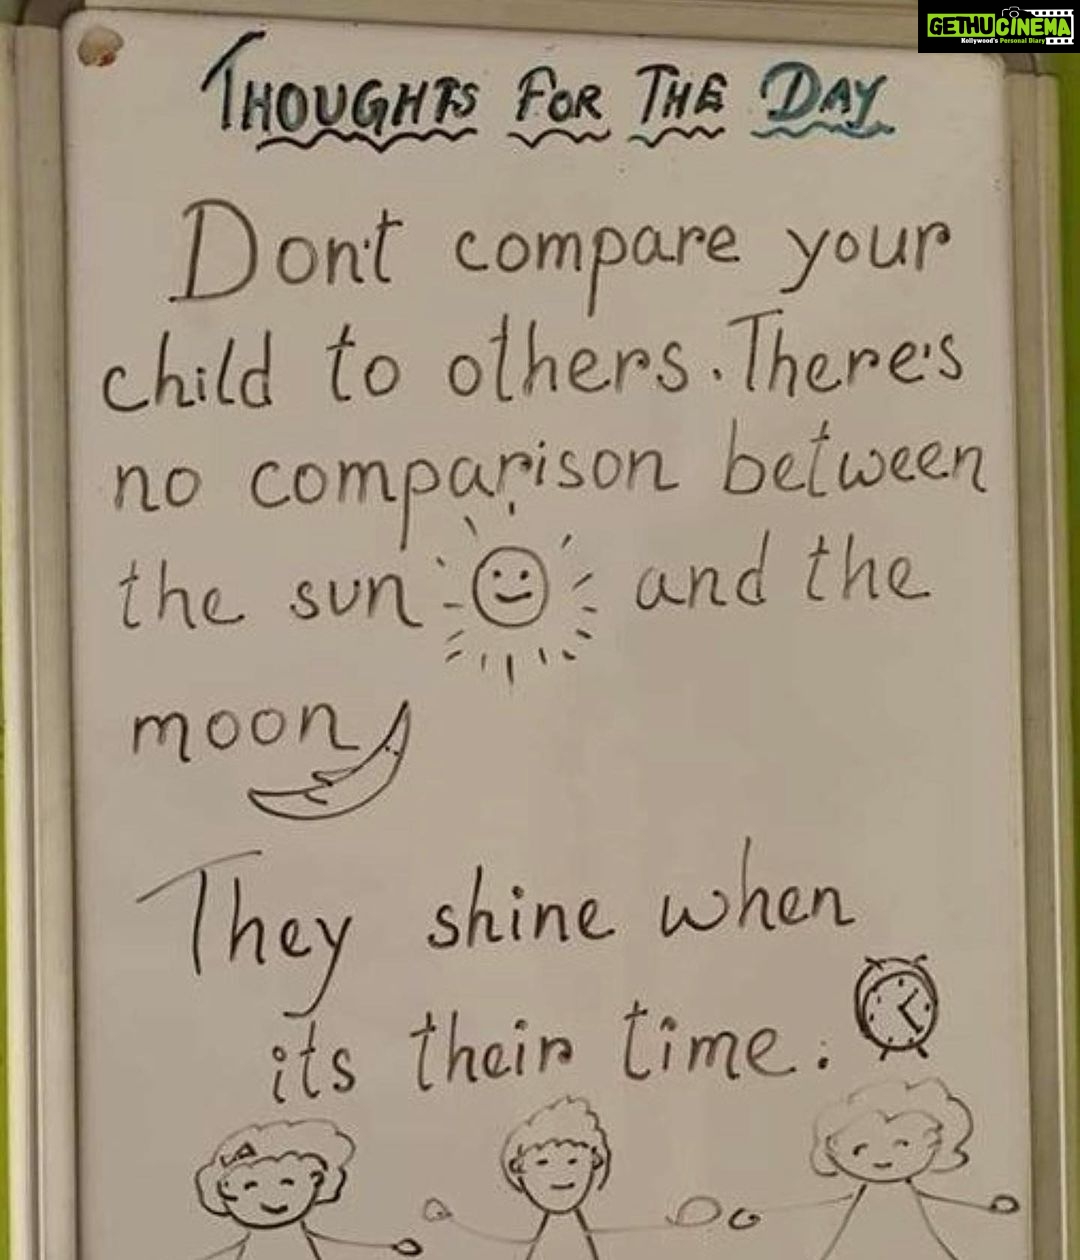 GETHUCINEMA
Kollywood's Personal Diary
THOUGHTS FOR THE DAY
Don't compare your
child to others. There's
no comparison between
the sun and the
moon
They shine when
its their time.